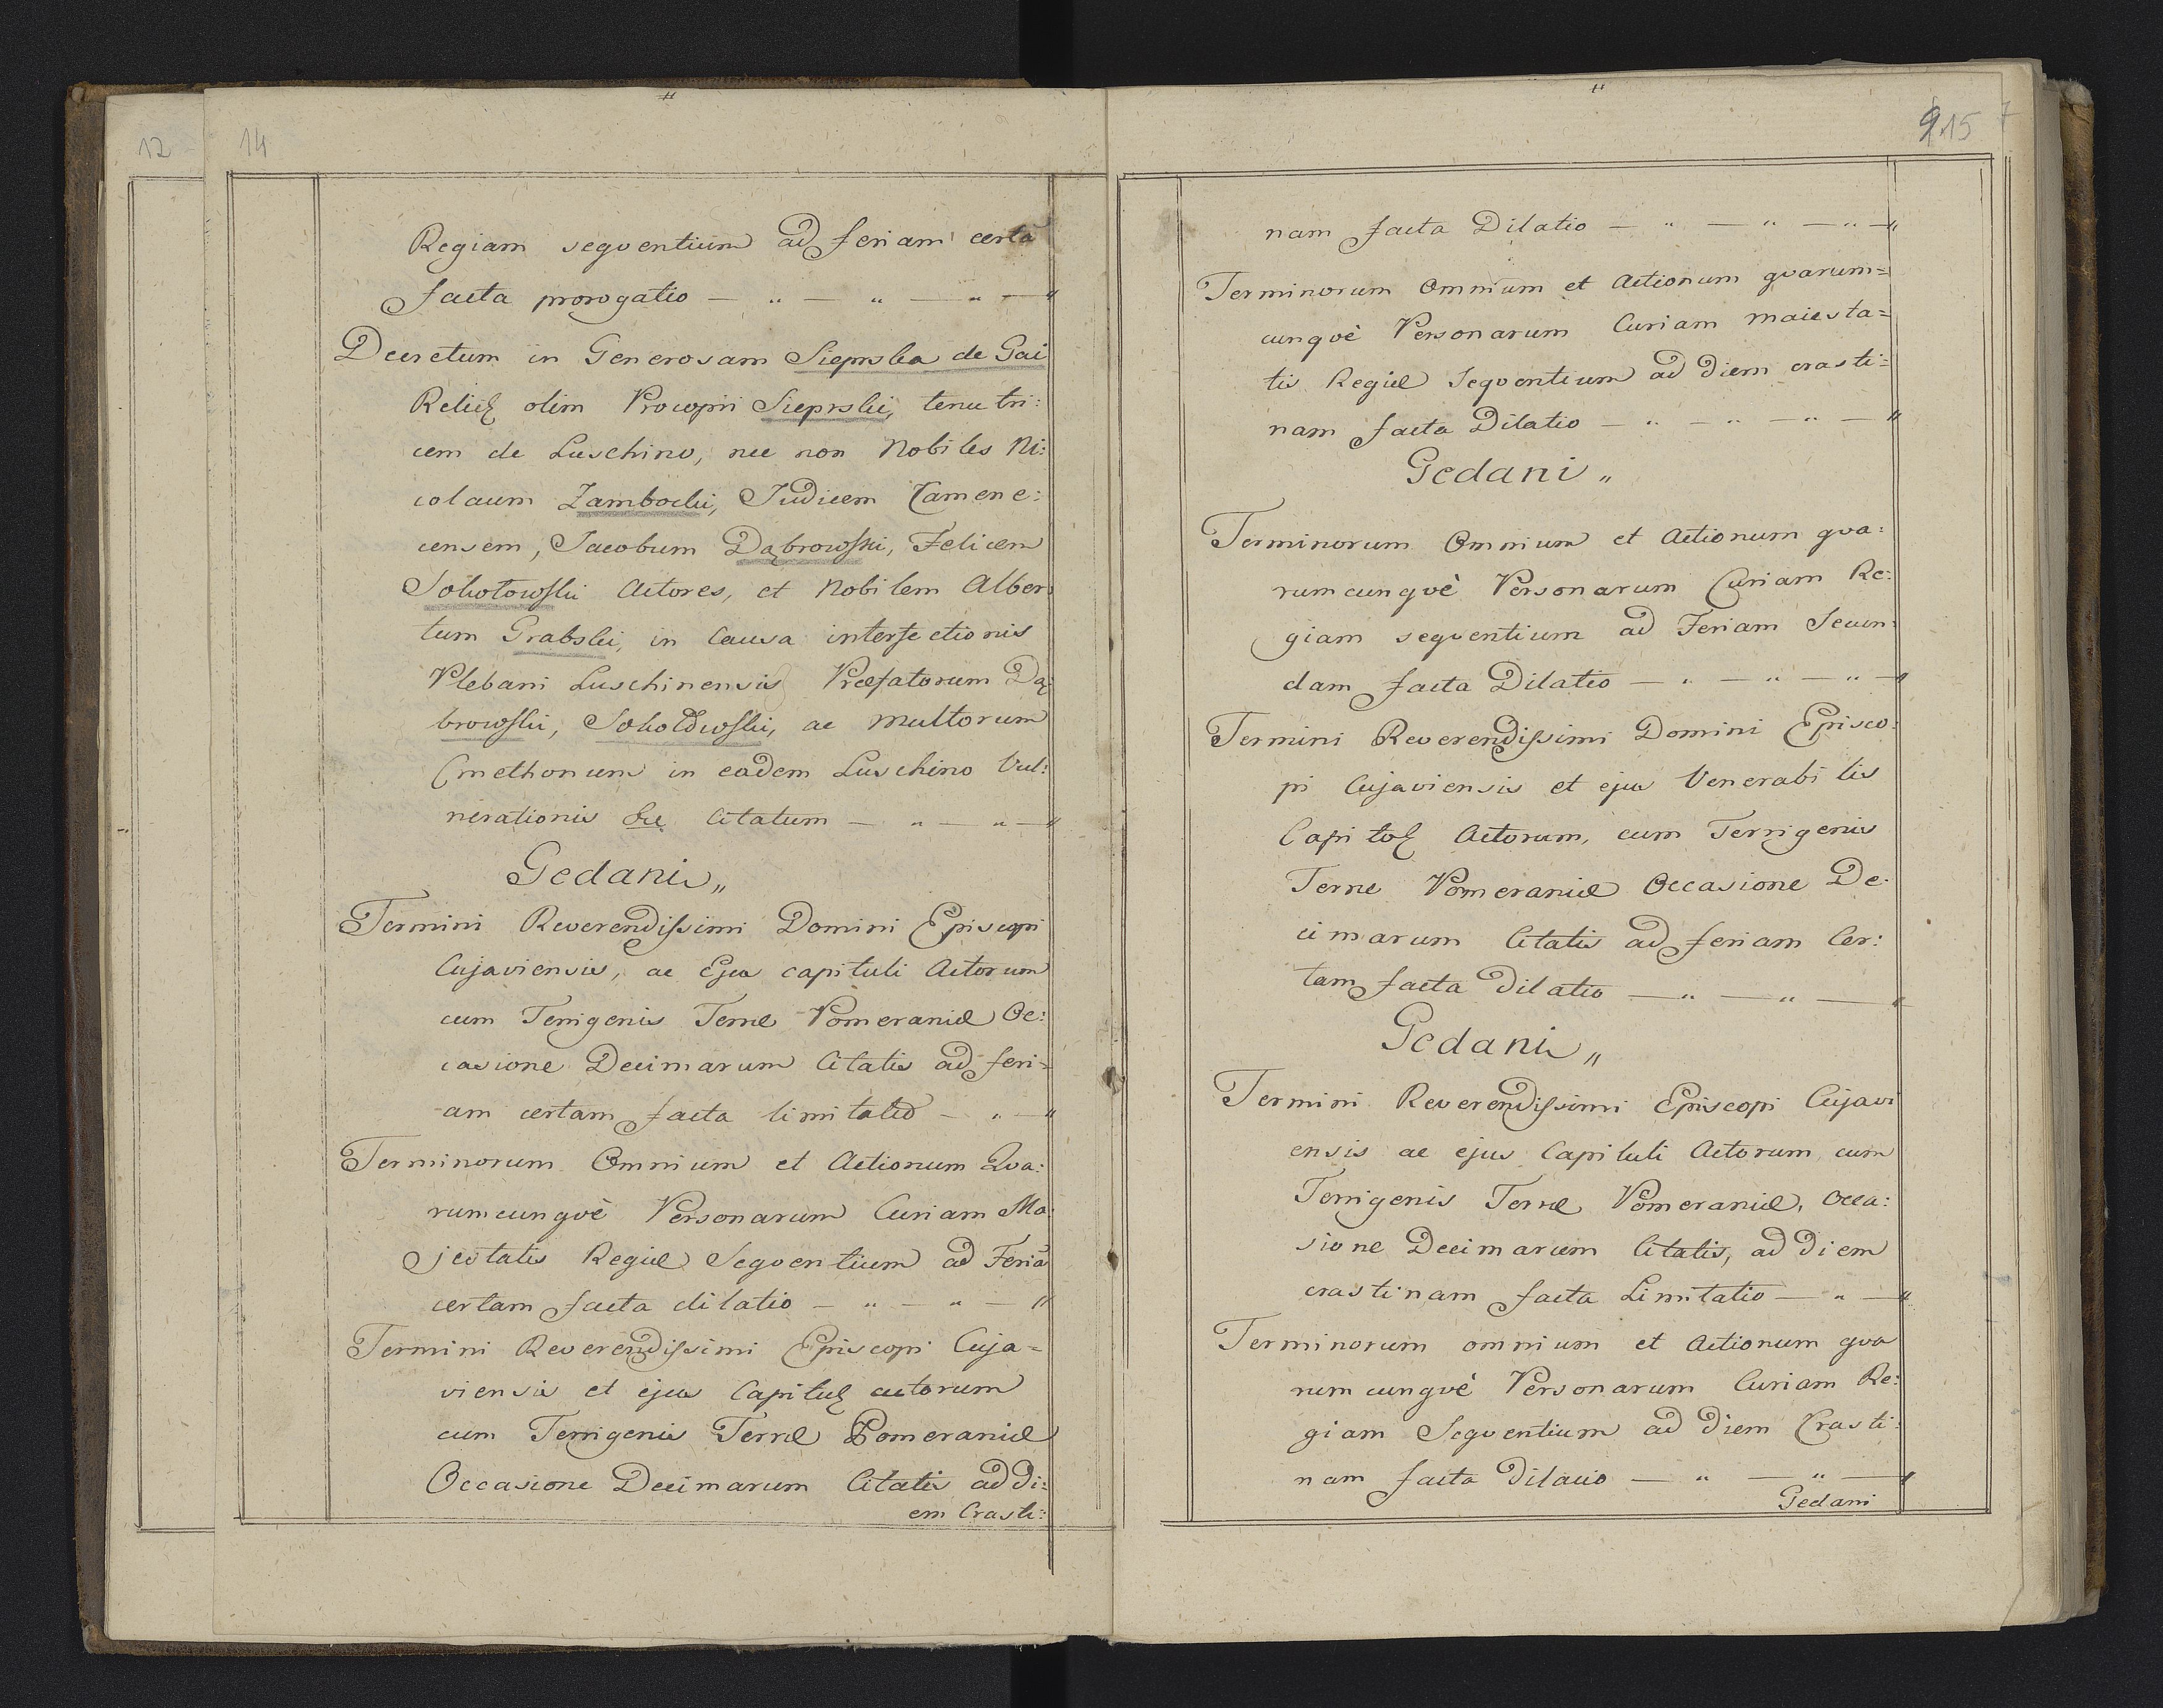 12
14
Regiam seqventium ad feriam certã
facta prorogatio — „ — „ — „ — „
Decretum in Generosam Sieprska de Gai
Relictę olim Procopii Sieprski, tenutri:
cem de Luschino, nec non Nobiles Ni:
colaum Zambocki, Judicem Camene:
censem, Jacobum Dąbrowski, Felicem
Sokołowski Actores, et Nobilem Alber
tum Grabski, in Causa interfectionis
Plebani Luschinensis Præfatorum Dą
browski, Sokołowski, ac multorum
Cmethonum in eadem Luschino Vul:
nerationis &c Citatum — „ — „ — „
Gedani „
Termini Reverendissimi Domini Episcopi
Cujaviensis, ac Ejus capituli Actorum
cum Terrigenis Terræ Pomeraniæ Oc:
casione Decimarum Citatis ad feri=
am certam facta limitatio — „ — „
Terminorum Omnium et Actionum Qva:
rumcunqvè Personarum Curiam Ma
jestatis Regiæ Seqventium ad Feriã
certam facta dilatio — „ — „ — „
Termini Reverendissimi Episcopi Cuja=
viensis et ejus Capitulę actorum
cum Terrigenis Terræ Pomeraniæ
Occasione Decimarum Citatis ad Di:
em Crasti:
9 15 7
nam facta Dilatio — „ — „ — „ — „
Terminorum Omnium et Actionum qvarum=
cunqvè Personarum Curiam maiesta=
tis Regiæ Seqventium ad Diem crasti=
nam facta Dilatio — „ — „ — „ — „
Gedani „
Terminorum Omnium et Actionum qva:
rumcunqvè Personarum Curiam Re:
giam seqventium ad Feriam Secun:
dam facta Dilatio — „ — „ — „ — „
Termini Reverendissimi Domini Episco:
pi Cujaviensis et ejus Venerabilis
Capitolę Actorum, cum Terrigenis
Terræ Pomeraniæ Occasione De:
cimarum Citatis ad feriam Cer:
tam facta Dilatio — „ — „ — „
Gedani „
Termini Reverendissimi Episcopi Cujavi
ensis ac ejus Capituli Actorum cum
Terrigenis Terræ Pomeraniæ, Occa:
sione Decimarum Citatis, ad Diem
crastinam facta Limitatio — „ — „
Terminorum omnium et Actionum qva
rumcunqvè Personarum Curiam Re:
giam Seqventium ad Diem Crasti:
nam facta Dilacio — „ — „ — „
Gedani